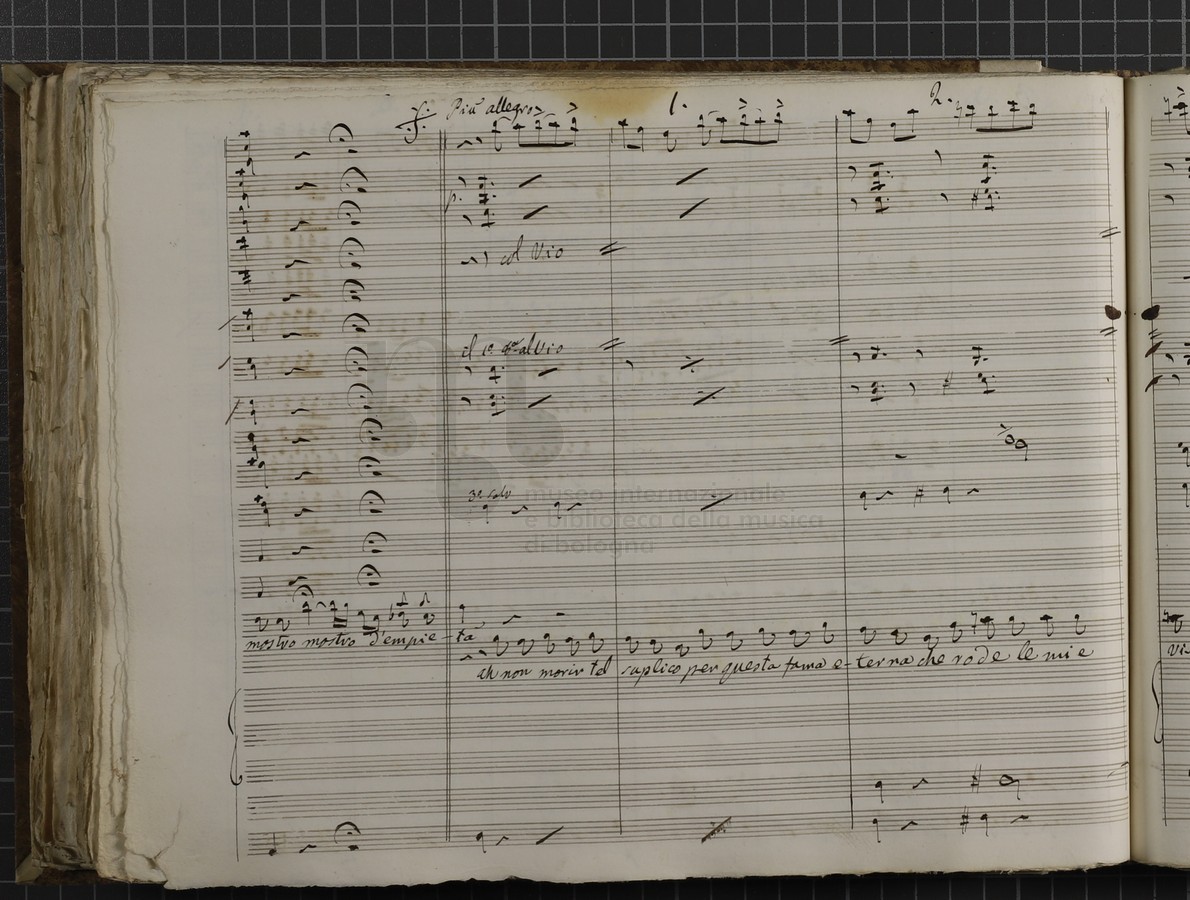 Più allegro 1. 2.
p.
col Vio
il 1º al Vio
museo internazionale
e biblioteca della musica
di bologna
mostro mostro d'empie-tà
ah non morir tel suplico per questa fama e-terna che rode le mie